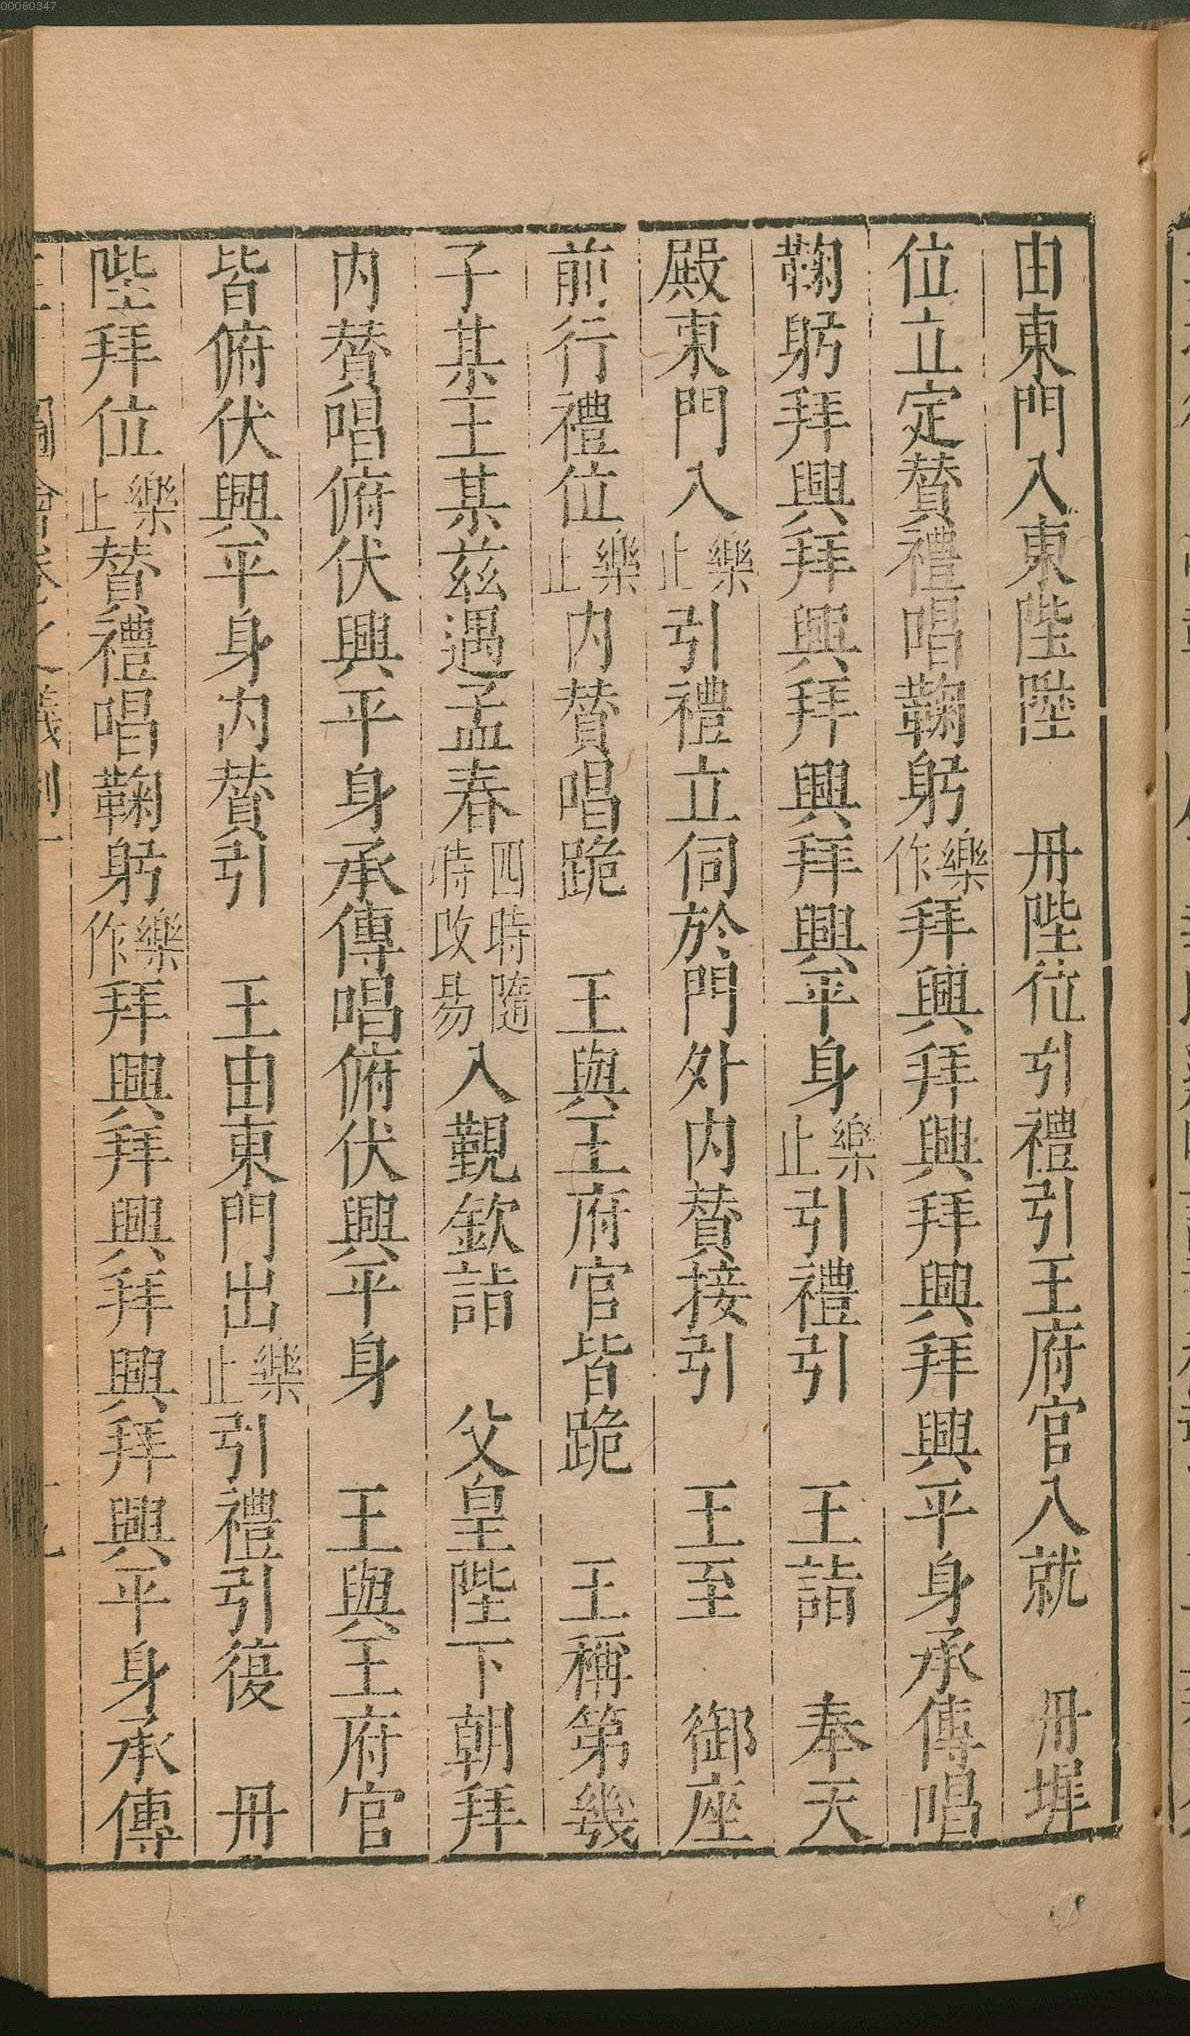 00060347
由東門入東陛陞　冊陛位引禮引王府官入就　冊墀
位立定賛禮唱鞠躬樂作拜興拜興拜興拜興平身承傳唱
鞠躬拜興拜興拜興拜興平身樂止引禮引　王詣　奉天
殿東門入樂止引禮立伺於門外内賛接引　王至　御座
前行禮位樂止内賛唱跪　王與王府官皆跪　王稱第幾
子某王某兹遇孟春四時隨時改易入觀欽詣　父皇陛下朝拜
内賛唱俯伏興平身承傳唱俯伏興平身　王與王府官
皆俯伏興平身内賛引　王由東門出樂止引禮引復　冊
陛拜位樂止賛禮唱鞠躬樂作拜興拜興拜興拜興平身承傳
圖會卷之儀制一